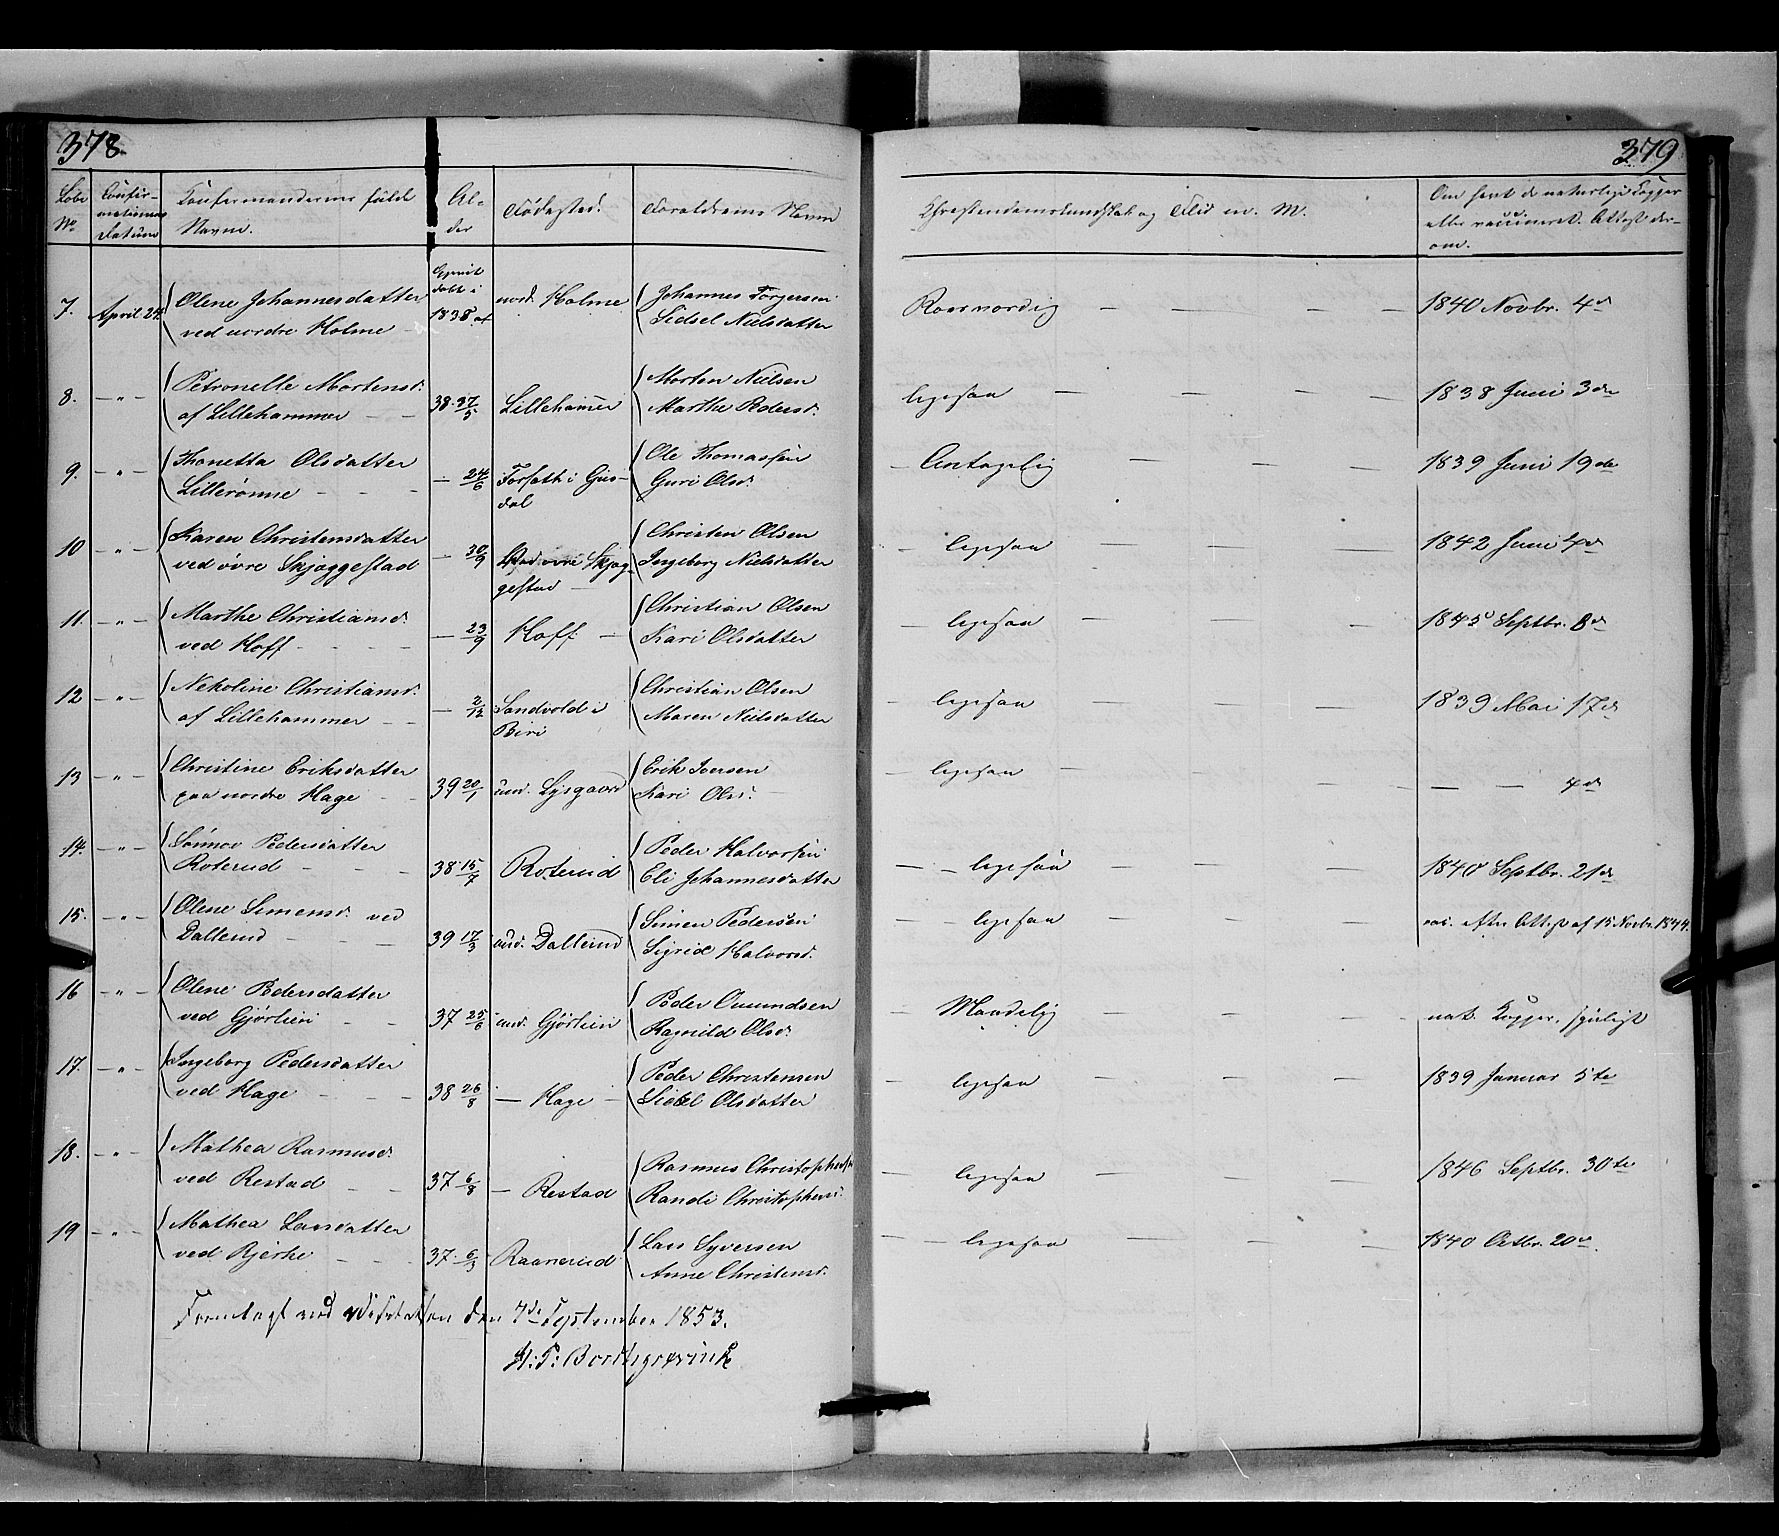 378
379
Løbe No
Confirmations Datum
Confirmandernes fulde Navne.
Alder
Fødested.
Forældrenes Navne
Christendomskundskab og Flid m. M.
Om havt de naturlige Kopper eller vaccineret. Attest derom.
7. April 24. Olene Johannesdatter 1838 nord. Holme Johannes Torgersen 1840 Novbr. 4de
ved nordre Holme Sidsel Nielsdatter
8. - " - Petronelle Mortensd. 38 27/5 Lillehamer Morten Nielsen ligesaa — — — 1838 Juni 3die
af Lillehammer Marthe Pedersd.
9. - " - Thonetta Olsdatter — 24/6 Forsæth i Gusdal Ole Thomassen — Antagelig — — — 1839 Juni 19de
Lillerønne Guri Olsd.
10 - " - Karen Christensdatter — 30/9 øvre Skjæggestad Christen Olsen — ligesaa — — — 1842 Juni 4de
ved øvre Skjæggestad Ingeborg Nielsdatter
11. - " - Marthe Christiansd. — 23/9 Hoff — Christian Olsen — ligesaa — — — 1845 Septbr. 8de
ved Hoff Kari Olsdatter
12 - " - Nekoline Christiansd. — 2/12 Sandvold i Biri Christian Olsen — ligesaa — — — 1839 Mai 17de
af Lillehammer Maren Nielsdatter
13 - " - Christine Eriksdatter 39 20/1 und. Lysgaard Erik Iversen — ligesaa — — — — — 4de
paa nordre Hage Kari Olsd.
14. - " - Sønnov Pedersdatter 38 15/7 Roterud Peder Halvorsen — ligesaa — — — 1840 Septbr. 21de
Roterud Eli Johannesdatter
15. - " - Olene Simensd. ved 39 17/3 und. Dallerud Simen Pedersen — ligesaa — — — vac. efter Att. af 15 Novbr. 1844.
Dallerud Sigrid Halvorsd.
16 - " - Olene Pedersdatter 37 25/6 und. Gjørlien Peder Amundsen — Maadelig — — — nat. Kopper,
ved Gjørlien Ragnild Olsd.
17. - " - Ingeborg Pedersdatter 38 26/8 — Hage — Peder Christensen — ligesaa — — — 1839 Januar 5te
ved Hage Sidsel Olsdatter
18. - " - Mathea Rasmusd. 37 6/8 — Restad Rasmus Christophersen — ligesaa — — — 1846 Septbr. 30te
ved Restad Randi Christophersd.
19 - " - Mathea Larsdatter 37 6/3 Raanerud Lars Syversen — ligesaa — — — 1840 Octbr. 20de.
ved Bjerke Anne Christensd.
Fremlagt ved Visitatsen den 7de September 1853.